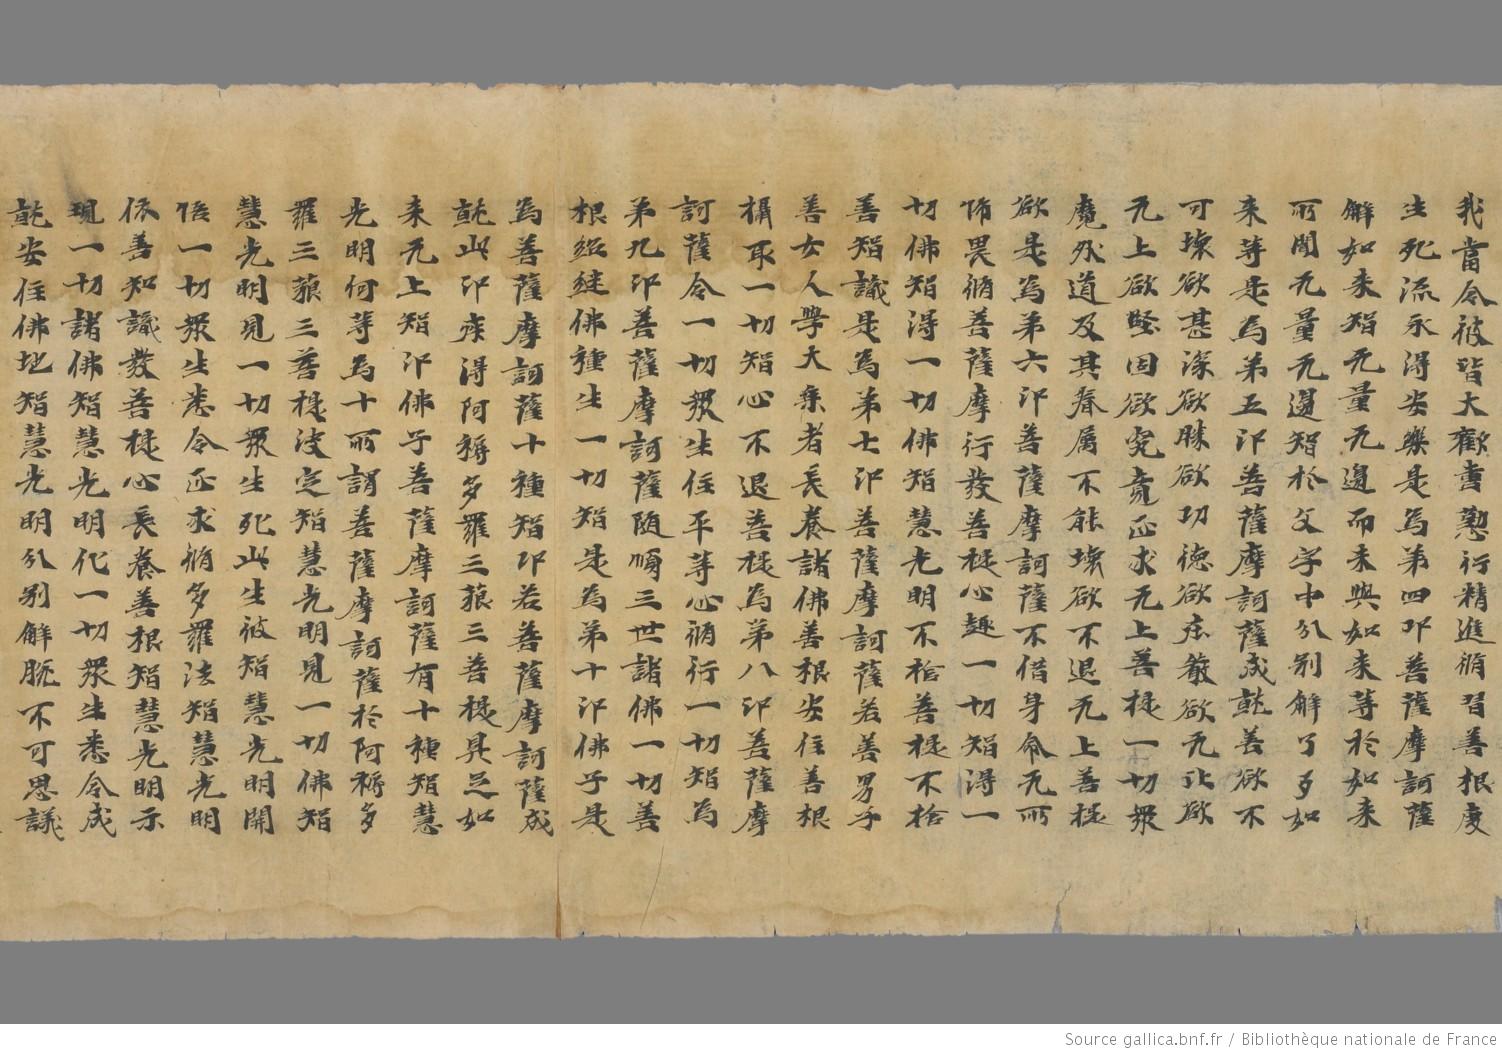 我當令彼皆大歡喜懃行精進脩習善根度
生死流永得安樂是為第四印菩薩摩訶薩
解如来智无量无邊而来與如来等於如来
所聞无量无邊智於文字中分別解了了如
来等是為第五印菩薩摩訶薩成就善欲不
可壞欲甚深欲勝欲功德欲庄嚴欲无比欲
无上欲堅固欲究竟正求无上菩提一切衆
魔外道及其眷属不能壞欲不退无上菩提
欲是為第六印菩薩摩訶薩不借身命无所
怖畏脩菩薩摩行發菩提心趣一切智得一
切佛智得一切佛智慧光明不捨菩提不捨
善智識是為第七印菩薩摩訶薩若善男子
善女人學大乗者長養諸佛善根安住善根
攝取一切智心不退菩提為第八印菩薩摩
訶薩令一切衆生住平等心脩行一切智為
第九印菩薩摩訶薩随順三世諸佛一切善
根紹継佛種生一切智是為第十印佛子是
為菩薩摩訶薩十種智印若菩薩摩訶薩成
就此印疾得阿耨多羅三藐三菩提具足如
来无上智印佛子菩薩摩訶薩有十種智慧
光明何等為十所謂菩薩摩訶薩於阿耨多
羅三藐三菩提决定智慧光明見一切佛智
慧光明見一切衆生死此生彼智慧光明開
悟一切衆生悉令正求脩多羅法智慧光明
依善知識發菩提心長養善根智慧光明示
現一切諸佛智慧光明化一切衆生悉令成
就安住佛地智慧光明分別解脱不可思議